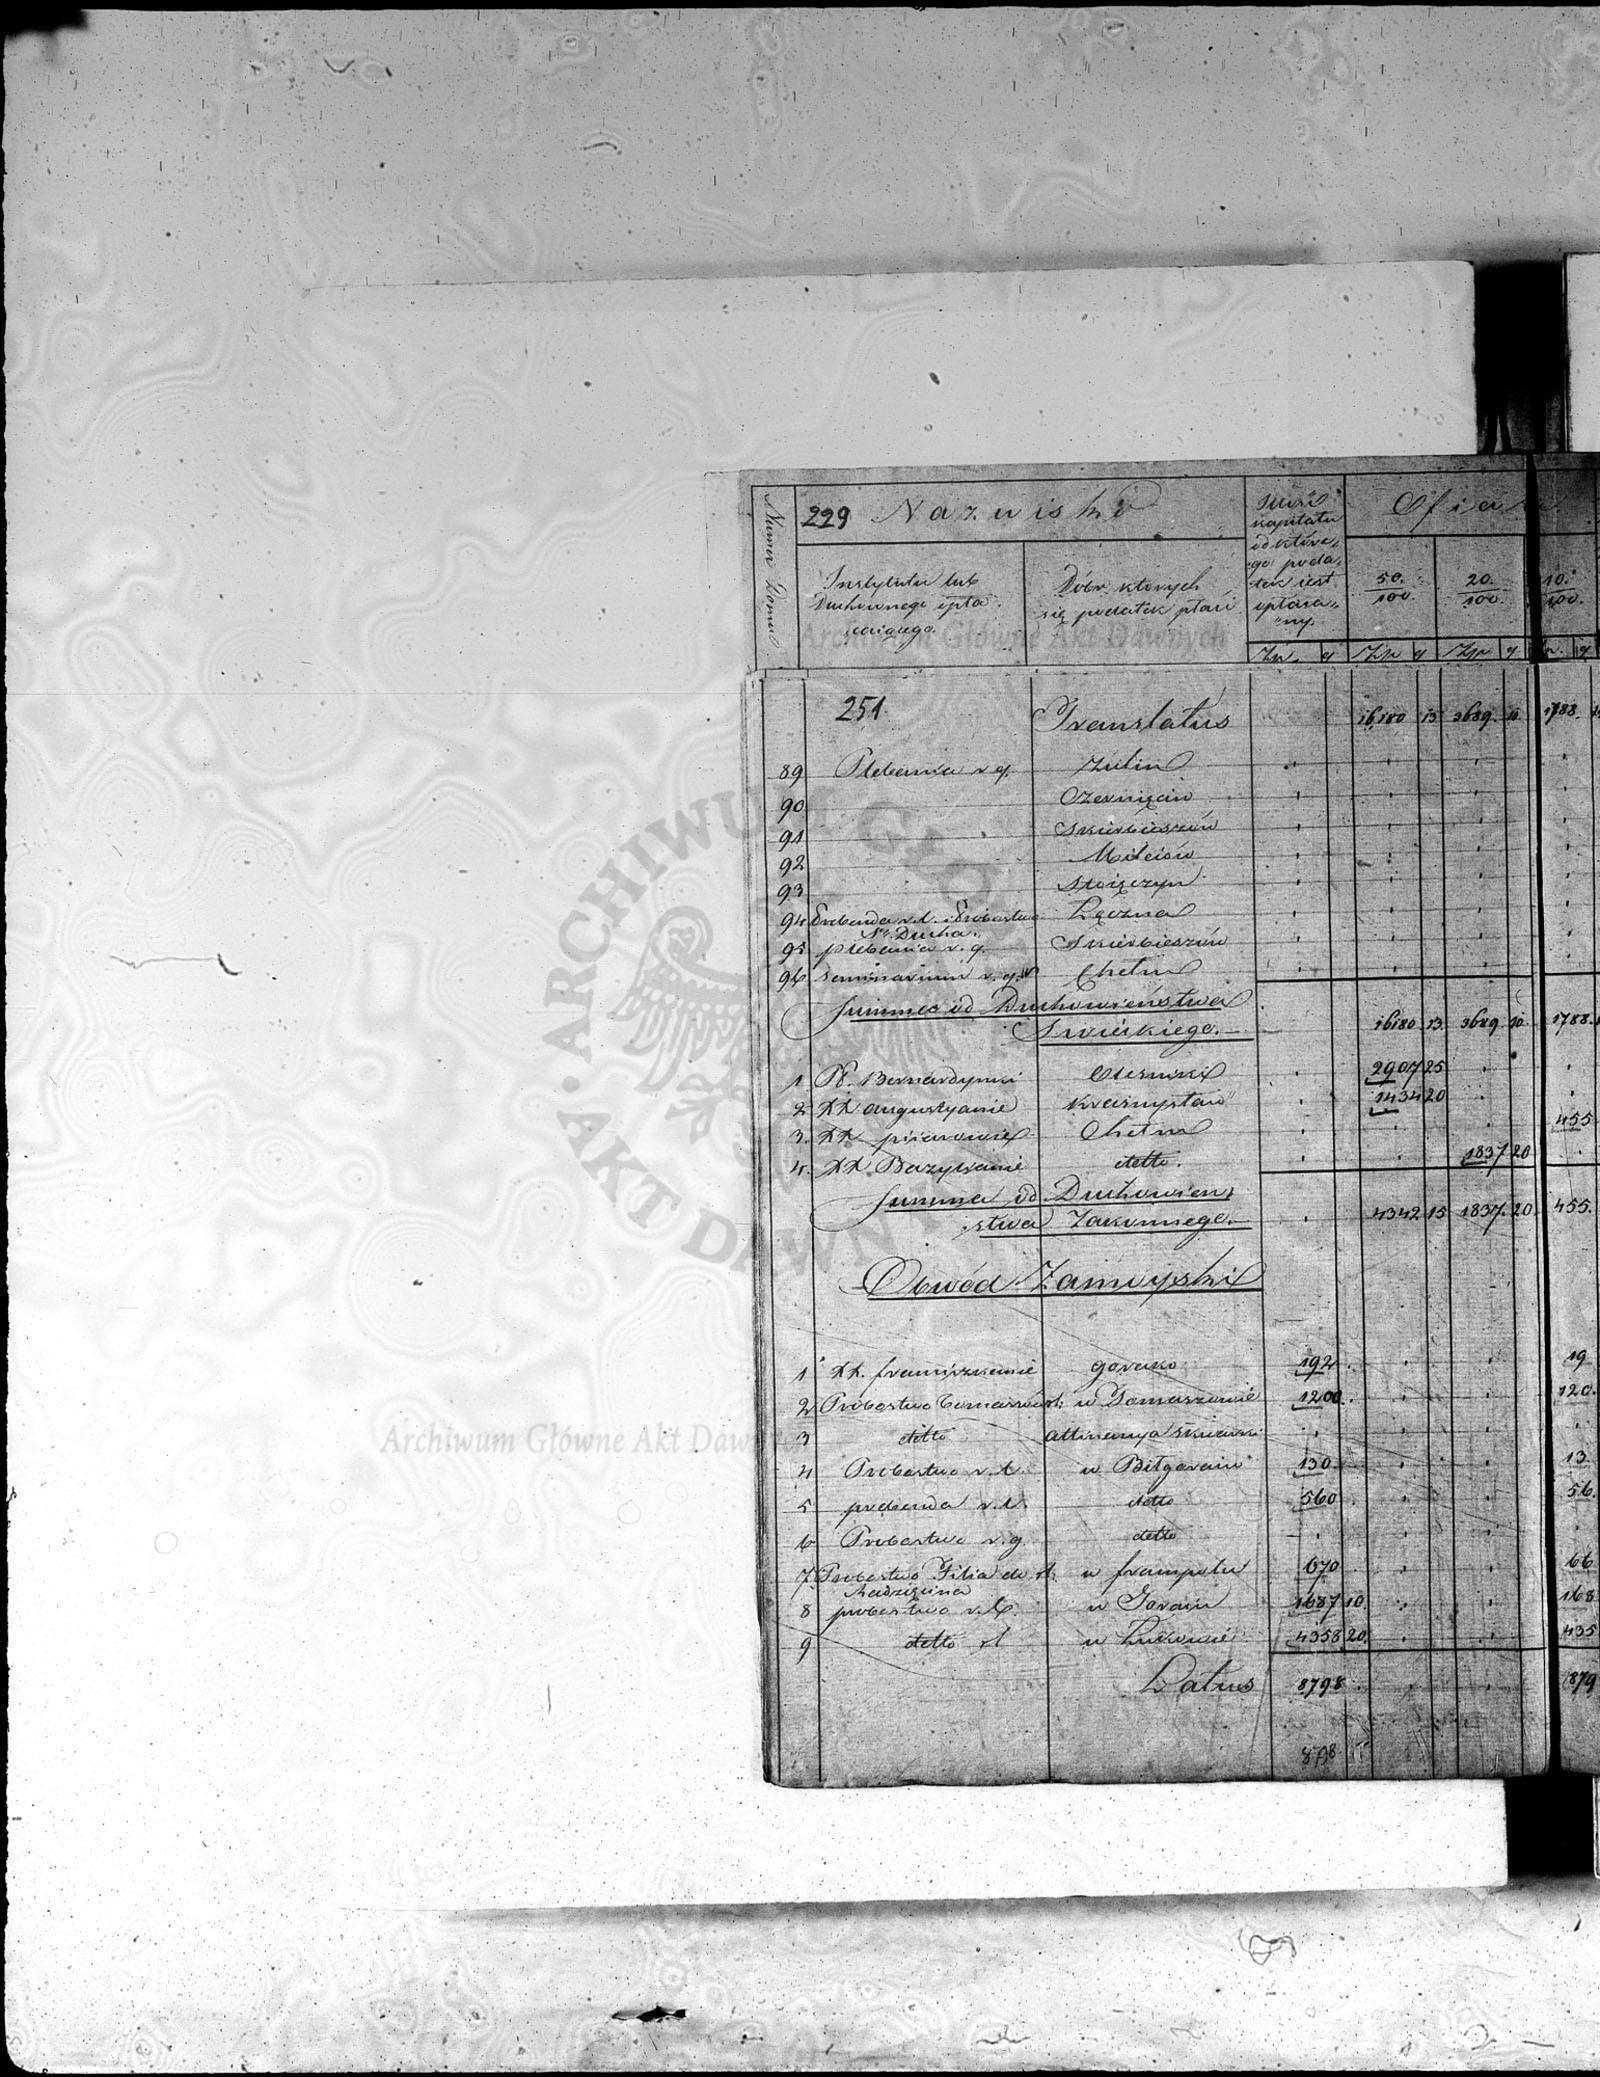 Numer Domu
229 Nazwisko
Ofiara
Instytutu lub
Duchownego opła
cającego.
Dóbr których
się podatek płaci
Ilość
kapitału
od które,
go poda,
tek jest
opłaca,
ny.
50./100.
20./100.
10./100.
Złp. g Złp g Złp g g
251 Translatus 16180 13 3689. 10 1788.
89 Plebania r. g. Żulin
90 Czernięcin
91 Skierbieszów
92
93
94 Prebenda r. l. Probostwo Łęczna
Sgo Ducha.
95 plebania r. g. Skierbieszów
96 Seminarium r. g. Chełm
Summa od Duchowieństwa
Swieckiego. 16180 13. 3689. 10 1788.
1 PP. Bernardynki 2907 25
2 XX augustyanie Krasnystaw 1434 20
3. XX pijarowie Chełm 455
4. XX Bazylianie detto. 1837 20
Summa od Duchowien,
stwa Zakonnego. 4342 15 1837. 20 455.
Obwód Zamoyski
1 XX. franciszkanie gorako 192 19
2 Probostwo w Tomaszowie 1200. 120.
3 detto
4 Probostwo r. l. w Biłgoraiu 130 13.
5 prebenda r. l. detto 560 56.
6 Probostwo r. g. detto
7 Probostwo Filia do w frampolu 670 66
Radzięcina
8 probostwo r. l. w Goraiu 1687 10. 168
9 detto rl w Łukowie 4358 20. 435
Latus 8798 879
Archiwum Główne Akt Dawnych
ARCHIWUM GŁÓWNE AKT DAWNYCH
Archiwum Główne Akt Dawnych